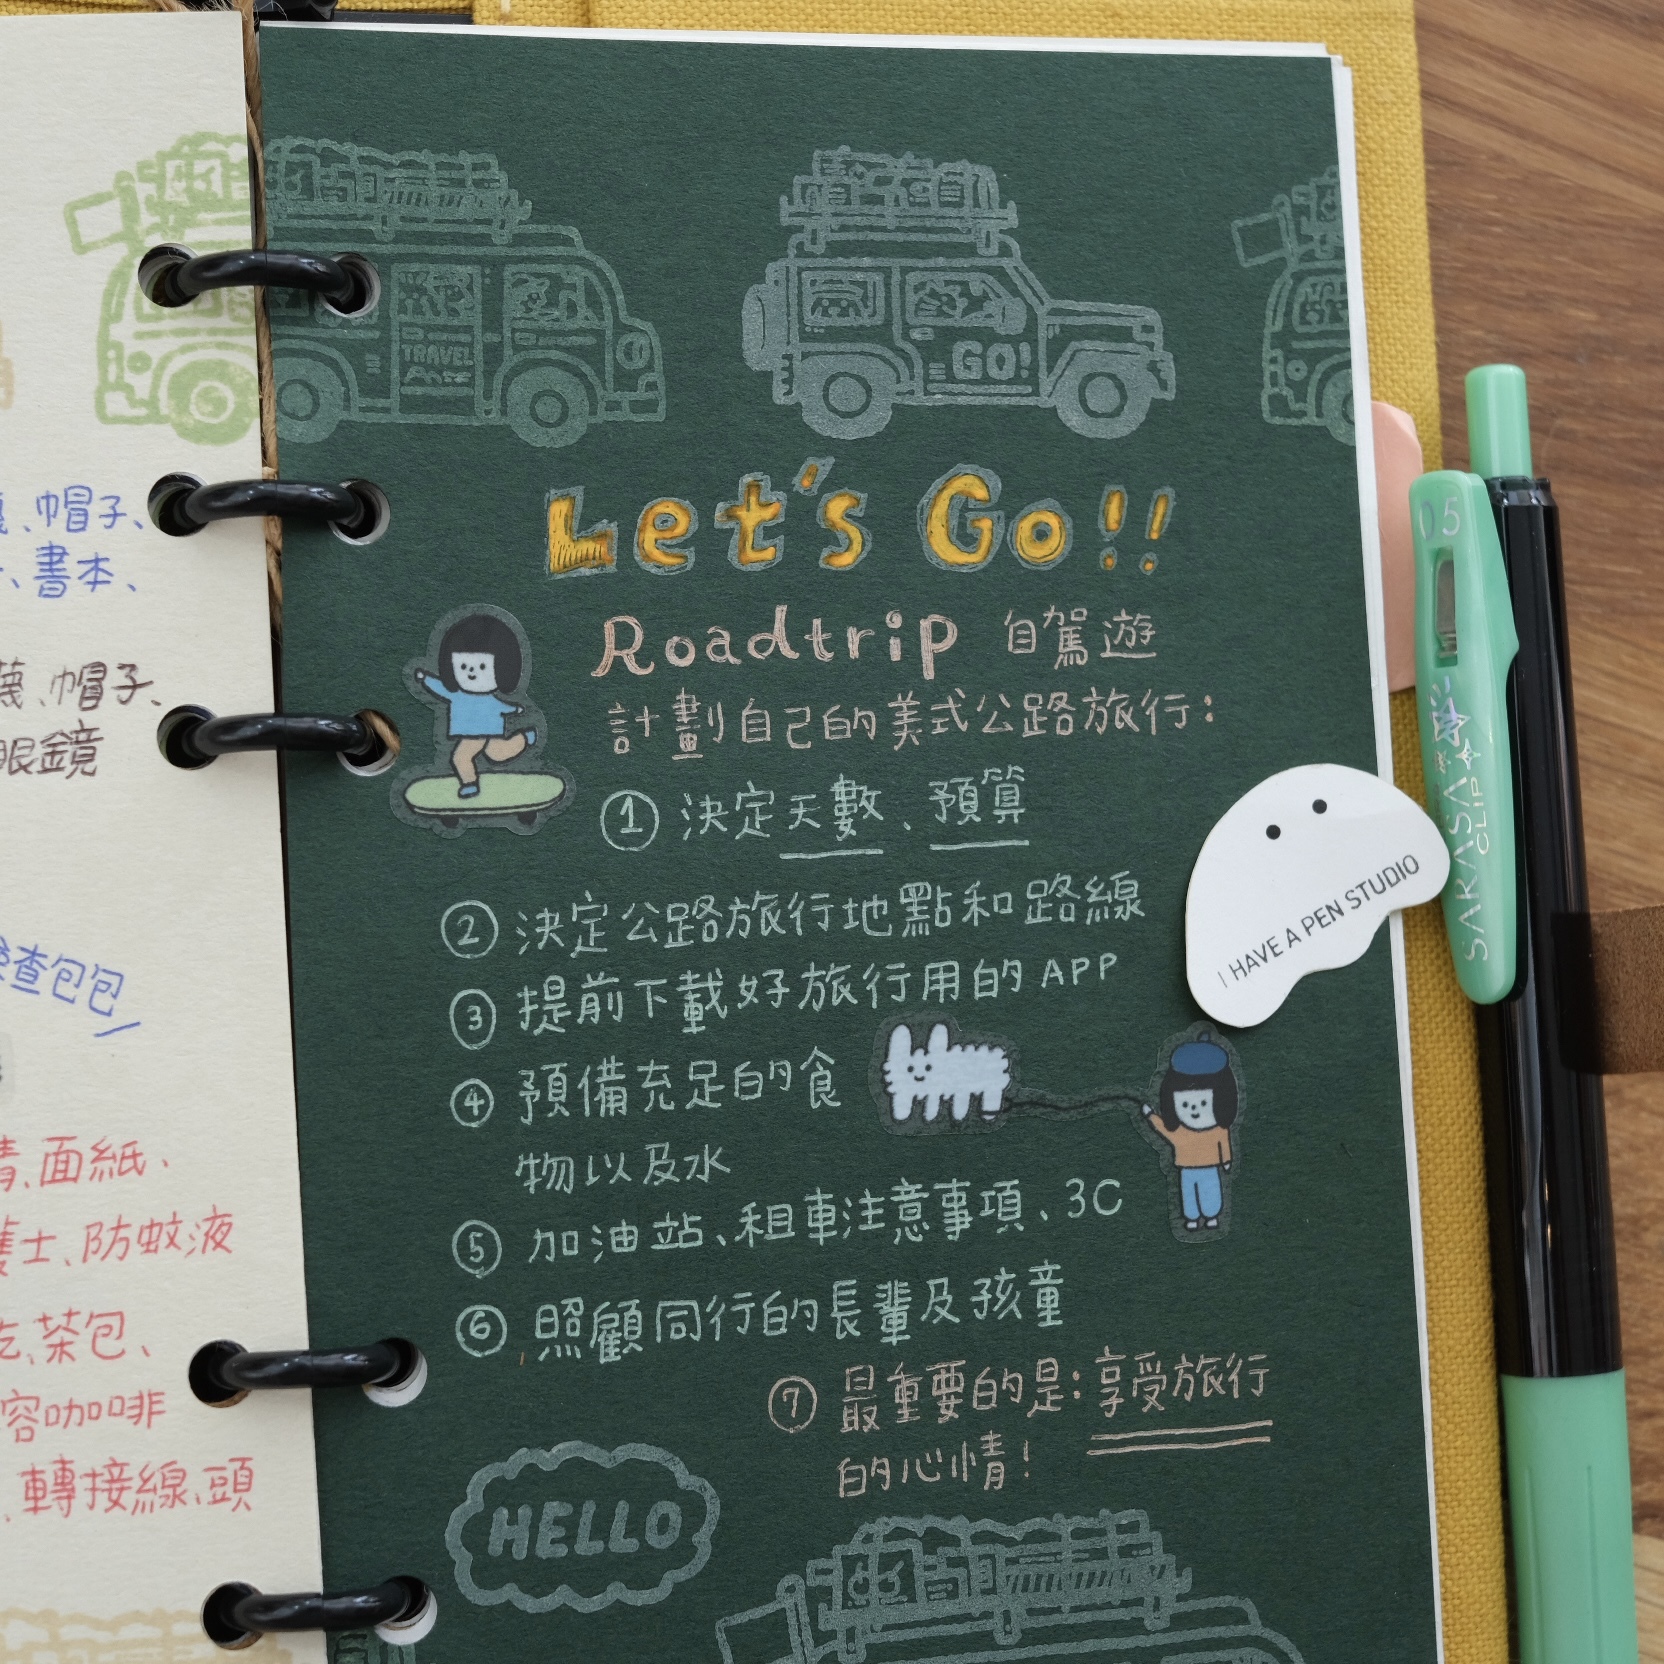 、帽子、
、書本、
、帽子、
眼鏡
查包包
、面紙、
士、防蚊液
、茶包、
容咖啡
、轉接線、頭
TRAVEL
GO!
Let's Go!!
Roadtrip 自駕遊
計劃自己的美式公路旅行:
① 決定天數、預算
② 決定公路旅行地點和路線
③ 提前下載好旅行用的 APP
④ 預備充足的食
物以及水
⑤ 加油站、租車注意事項、3C
⑥ 照顧同行的長輩及孩童
⑦ 最重要的是:享受旅行
的心情!
HELLO
I HAVE A PEN STUDIO
05
SARASA
CLIP